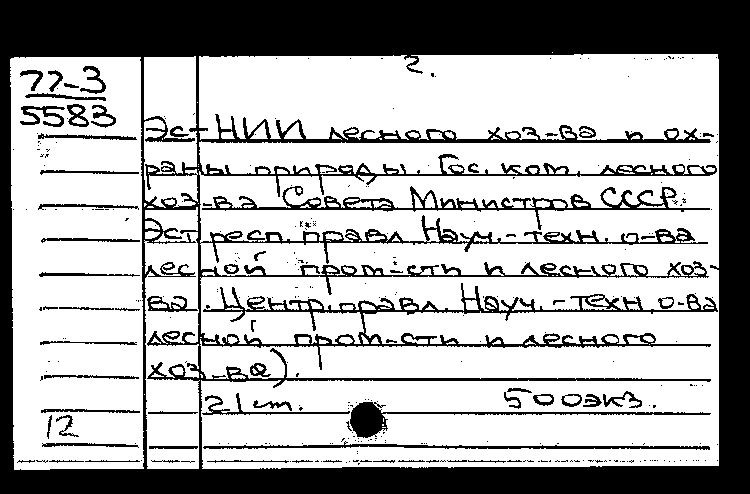 2.
77-3
5583
Эст НИИ лесного хоз-ва и ох-
раны природы. Гос. ком. лесного
хоз-ва Совета Министров СССР.
Эст. респ. правл. Науч.-техн. о-ва
лесной пром-сти и лесного хоз-
ва. Центр. правл. Науч.-техн. о-ва
лесной пром-сти и лесного
хоз-ва).
21 cm. 500экз.
12